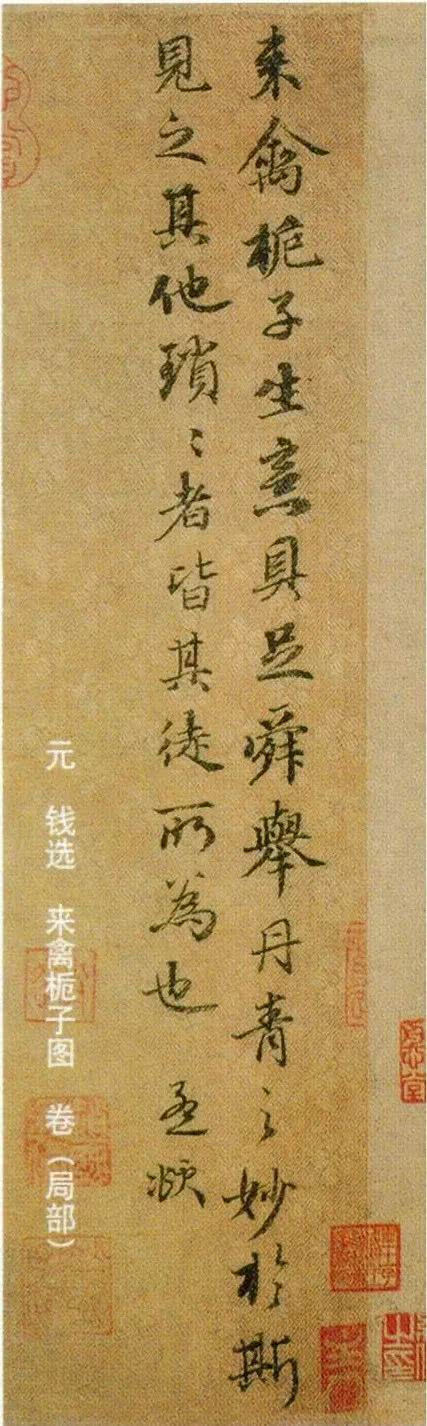 来禽栀子生意具足舜舉丹青之妙於斯
見之其他瑣〻者皆其徒所為也 孟頫
元 钱选 来禽栀子图 卷（局部）